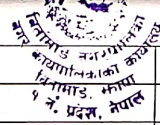 बिर्तामोड नगरपालिका
नगर कार्यपालिकाको कार्यालय
बिर्तामोड, झापा
१ नं. प्रदेश, नेपाल